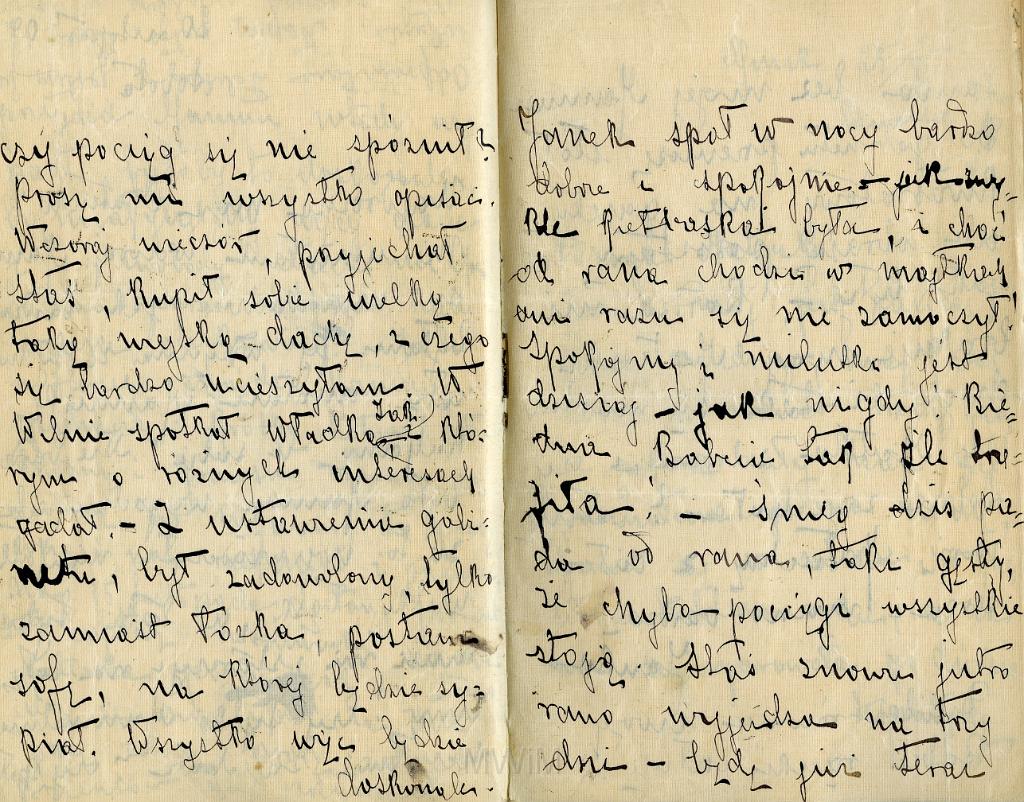 czy pociąg się nie spóźnił?
Proszę mi wszystko opisać.
Wczoraj wieczór, przyjechał
Staś, kupił sobie wielką
taką wiejską dachę, z czego
się bardzo ucieszyłam. W
Wilnie spotkał Władka z któ-
rym o różnych interesach
gadał. – Z ustawienia gabi-
netu, był zadowolony, tylko
zamiast łóżka, postawię
sofę, na której będzie sy-
piał. Wszystko więc będzie
doskonale.
Janek spał w nocy bardzo
dobrze i spokojnie – jak zwy-
kle Pietraszka była, i choć
od rana chodzi w majtkach
ani razu się nie zamoczył!
Spokojny i milutki jest
dzisiaj – jak nigdy! Bie-
dna Babcia tak źle tra-
fiła! – Śnieg dziś pa-
da od rana, taki gęsty,
że chyba pociągi wszystkie
stoją. Staś znowu jutro
rano wyjeżdża na trzy
dni – będę już teraz
MWiM